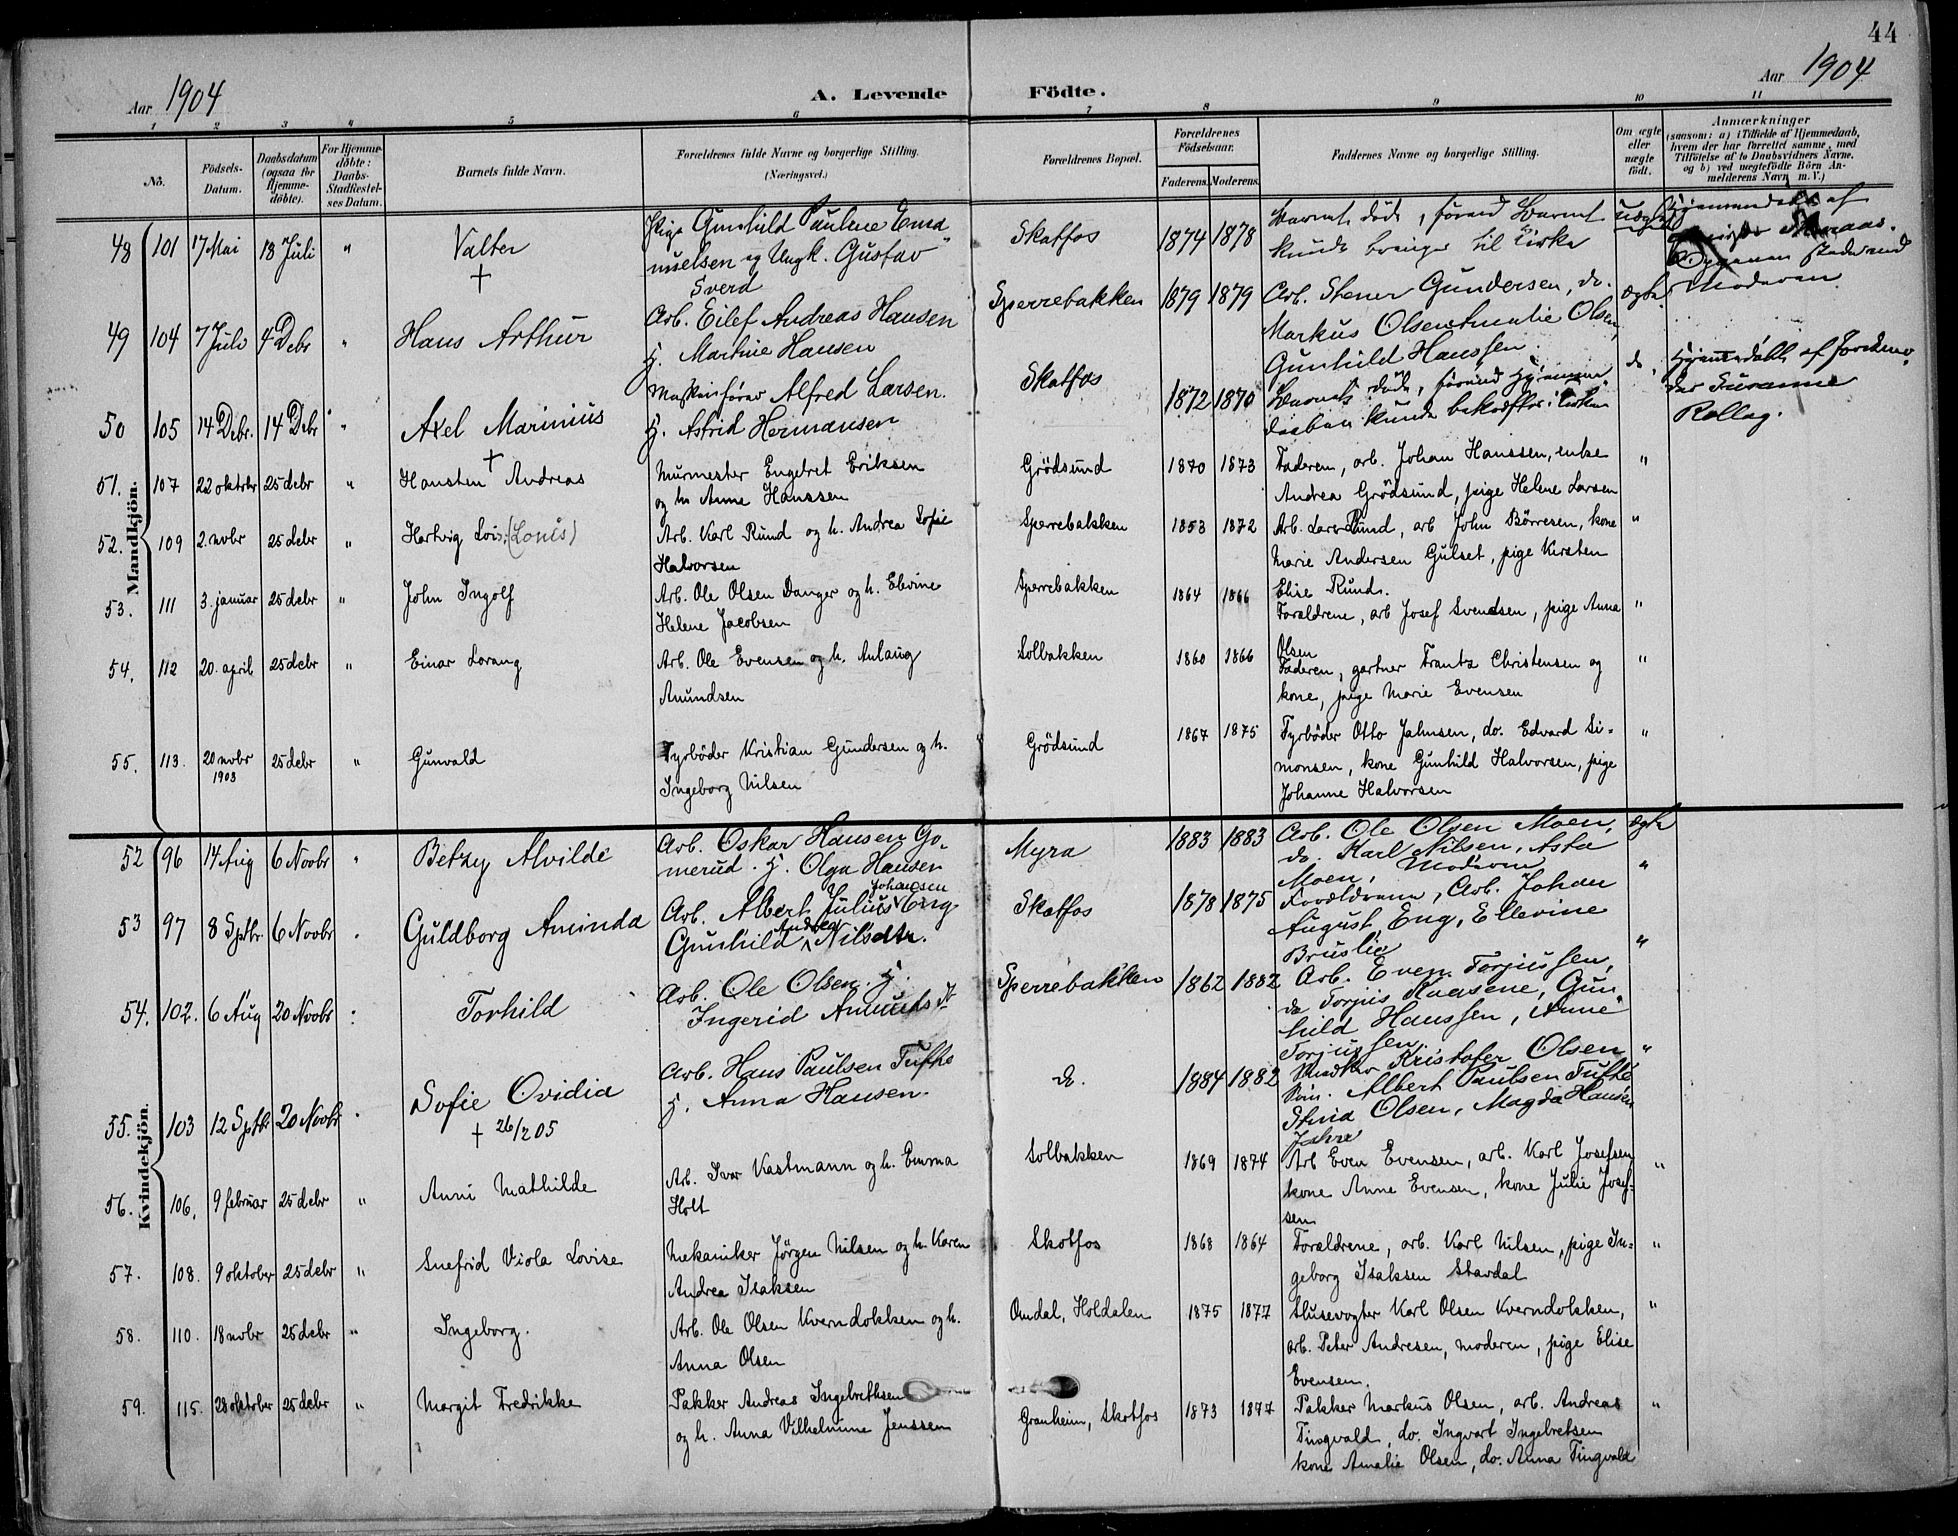 44
Aar 1904
A. Levende Födte.
Aar 1904
1 2 3 4 5 6 7 8 9 10 11
No.
Födsels-Datum.
Daabsdatum (ogsaa for Hjemme-döbte).
For Hjemme-döbte: Daabs-Stadfæstel-ses Datum.
Barnets fulde Navn.
Forældrenes fulde Navne og borgerlige Stilling.
(Næringsvei.)
Forældrenes Bopæl.
Forældrenes Födselsaar.
Faderens. Moderens.
Faddernes Navne og borgerlige Stilling.
Om ægte eller uægte födt.
Anmærkninger
(saasom: a) i Tilfælde af Hjemmedaab, hvem der har forrettet samme, med Tilföielse af to Daabsvidners Navne, og b) ved uægtefödte Börn An-melderens Navn m. V.)
Mandkjön.
48 101 17 Mai 18 Juli " Valter +
Pige Gunhild Pauline Ema
nuelsen og Ungk. Gustav
Sverd
Skotfos 1874 1878
Barnet döde, förend Barnet
kunde bringes til Kirke
uægte
Hjemmedöbt af
Moderen.
49 104 7 Juli 4 Debr " Hans Arthur
Arb. Eilef Andreas Hansen
H. Martine Hansen
Sperrebakken 1879 1879
Arb. Stener Gundersen, do.
Markus Olsen, Amalie Olsen,
Gunhild Hanssen
ægte
50 105 14 Debr. 14 Debr " Axel Marinius +
Maskinförer Alfred Larsen.
H. Astrid Hermansen
Skotfos 1872 1870
Barnet döde, förend Hjemme
daaben kunde bekræftes i Kirken
do
Hjemmedöbt af Jordemo-
der Susanne
Rollag.
51. 107 22 oktbr 25 debr " Hansten Andreas
Murmester Engebret Eriksen
og h. Anne Hanssen
Grödsund 1870 1873
Faderen, arb. Johan Hanssen, enke
Andrea Grödsund, pige Helene Larsen
"
52. 109 2. novbr 25 debr " Hartvig Lois (Louis)
Arb. Karl Rund og h. Andrea Sofie
Halvorsen
Sperrebakken 1853 1872
Arb. Lars Rund, arb John Börresen, kone
Marie Andersen Gulset, pige Kirsten
Elise Rund.
"
53. 111 3. januar 25 debr " John Ingolf
Arb. Ole Olsen Danger og h. Elevine
Helene Jacobsen
Sperrebakken 1864 1866
Foraldrene, arb Josef Svendsen, pige Anna
Olsen
"
54. 112 20. april 25 debr " Einar Lorang
Arb. Ole Evensen og h. Aslaug
Amundsen
Solbakken 1860 1866
Faderen, gartner Frantz Christensen og
kone, pige Marie Evensen
"
55. 113. 20 novbr 1903 25 debr " Gunvald
Fyrböder Kristian Gundersen og h.
Ingeborg Nilsen
Grödsund 1867 1875
Fyrböder Otto Jahnsen, do. Edvard Si=
monsen, kone Gunhild Halvorsen, pige
Johanne Halvorsen
"
Kvindekjön.
52 96 14 Aug 6 Novbr " Betzy Alvilde
Arb. Oskar Hansen Go-
merud. H. Olga Hansen
Myra 1883 1883
Arb. Ole Olsen Moen,
do. Karl Nilsen, Asta
Moen, Moderen
ægte
53 97 8 Septbr. 6 Novbr . Guldborg Aminda
Arb. Albert Julius Johansen Eng
Gunhild Andrea Nilsdtr.
Skotfos 1878 1875
Forældrene, Arb. Johan
August Eng, Ellevine
Bruslia
"
54. 102. 6 Aug 20 Novbr : Torhild
Arb. Ole Olsen. H.
Ingerid
Sperrebakken 1862 1882
Arb. Even Torjussen,
do Torjus Kaasene, Gun
hild Hanssen, Anne
Torjussen.
"
55. 103 12 Septbr 20 Novbr . Sofie Ovidia
+ 26/2 05
Arb. Hans Paulsen Tufte
H. Anna Hansen.
do. 1884 1882
Kristofer Olsen
Albert Paulsen Tufte
Stina Olsen, Magda Hansen
"
56. 106. 9 februar 25 debr " Anni Mathilde
Arb. Ivar Vastmann og h. Emma
Holt
Solbakken 1869 1874
Arb Even Evensen, arb. Karl Josefsen
kone Anne Evensen, kone Julie Josef=
sen
"
57. 108. 9 oktober 25 debr " Snefrid Viola Lovise
Mekaniker Jörgen Nilsen og h. Karen
Andrea Isaksen
Skotfos 1868 1864
Foraldrene, arb. Karl Nilsen, pige In=
geborg Isaksen Stavdal
"
58. 110. 18 novbr 25 debr " Ingeborg.
Arb. Ole Olsen Kverndokken og h.
Anna Olsen
Omdal, Holdalen 1875 1877
Slusevogter Karl Olsen Kverndokken,
arb. Peter Andresen, moderen, pige Elise
Evensen.
"
59. 115. 28 oktober 25 debr " Margit Fredrikke
Pakker Andreas Ingebrethsen
og h. Anna Vilhelmine Jenssen
Granheim, Skotfos 1873 1877
Pakker Markus Olsen, arb. Andreas
Tingvald, do. Ingvart Ingebretsen
kone Amalie Olsen, do. Anna Tingvald
"